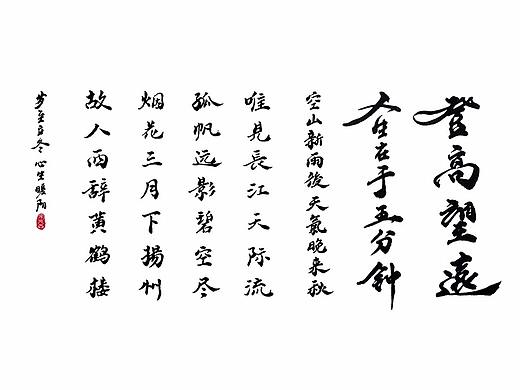 登高望遠
人生在于五分钟
空山新雨後天氣晚来秋
唯見長江天际流
孤帆远影碧空尽
烟花三月下揚州
故人西辞黄鹤楼
岁至立冬心生暖阳